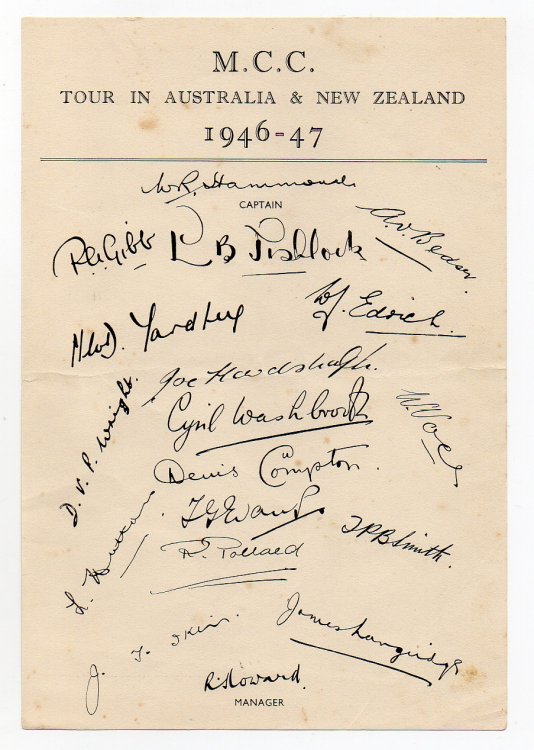 M.C.C.
TOUR IN AUSTRALIA & NEW ZEALAND
1946-47
W.R. Hammond
CAPTAIN
A.V. Bedser.
P.A. Gibb
L B Fishlock
W.J. Edrich.
N.W.D. Yardley
Joe Hardstaff Jr.
D. V. P. Wright.
Cyril Washbrook
W Voce
Denis Compton.
T G Evans
L. Hutton
T P B Smith.
R. Pollard
J. T. Ikin.
James Langridge
R. Howard.
MANAGER